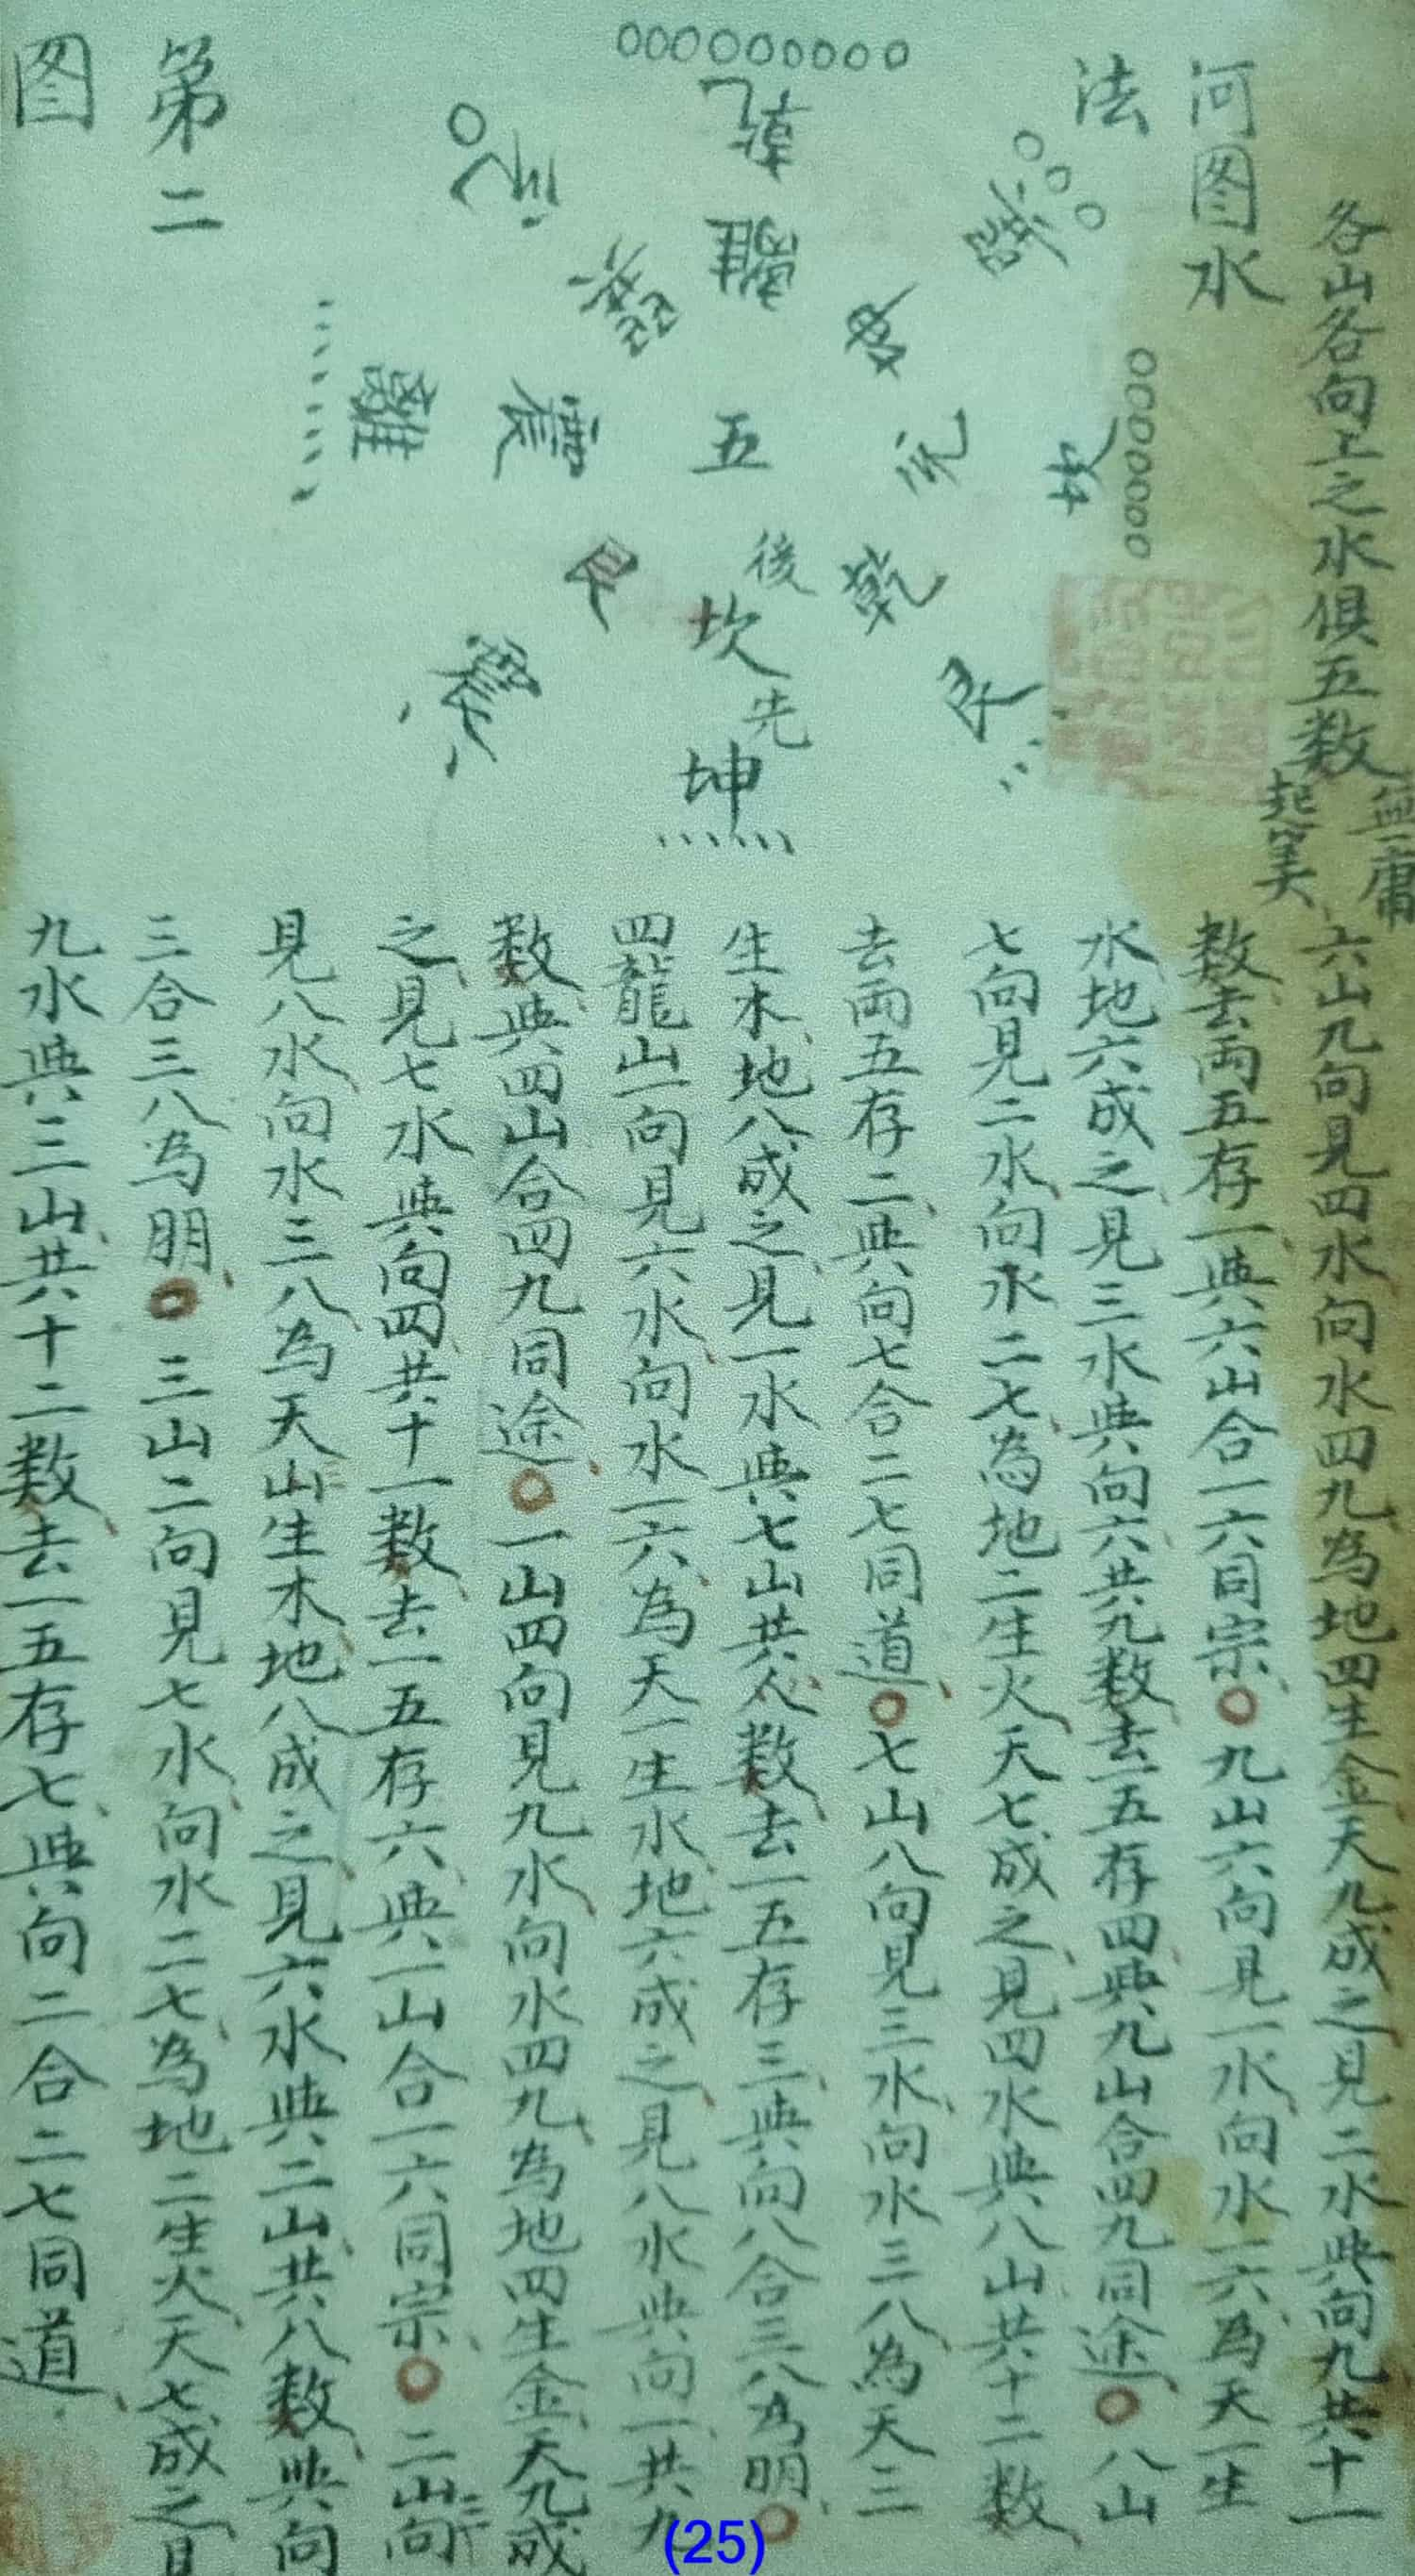 各山各向上之水俱五数
無庸
起筭
河图水
法
第二
图
九
乾
離
兌
巽
坤
巽
兌
坎
離
震
五
後
坎
先
坤
艮
乾
艮
震
六山九向見四水向水四九為地四生金天九成之見二水典向九共十一
数去両五存一典六山合一六同宗〇九山六向見一水向水一六為天一生
水地六成之見三水典向六共九数去一五存四典九山合四九同途〇八山
七向見二水向水二七為地二生火天七成之見四水典八山共十二数
去両五存二典向七合二七同道〇七山八向見三水向水三八為天三
生木地八成之見一水典七山共八数去一五存三典向八合三八為明〇
四龍山一向見六水向水一六為天一生水地六成之見八水典向一共九
数典四山合四九同途〇一山四向見九水向水四九為地四生金天九成
之見七水典向四共十一数去一五存六典一山合一六同宗〇二山三向
見八水向水三八為天山生木地八成之見六水典二山共八数典向
三合三八為明〇三山二向見七水向水二七為地二生火天七成之見
九水典三山共十二数去一五存七典向二合二七同道
(25)